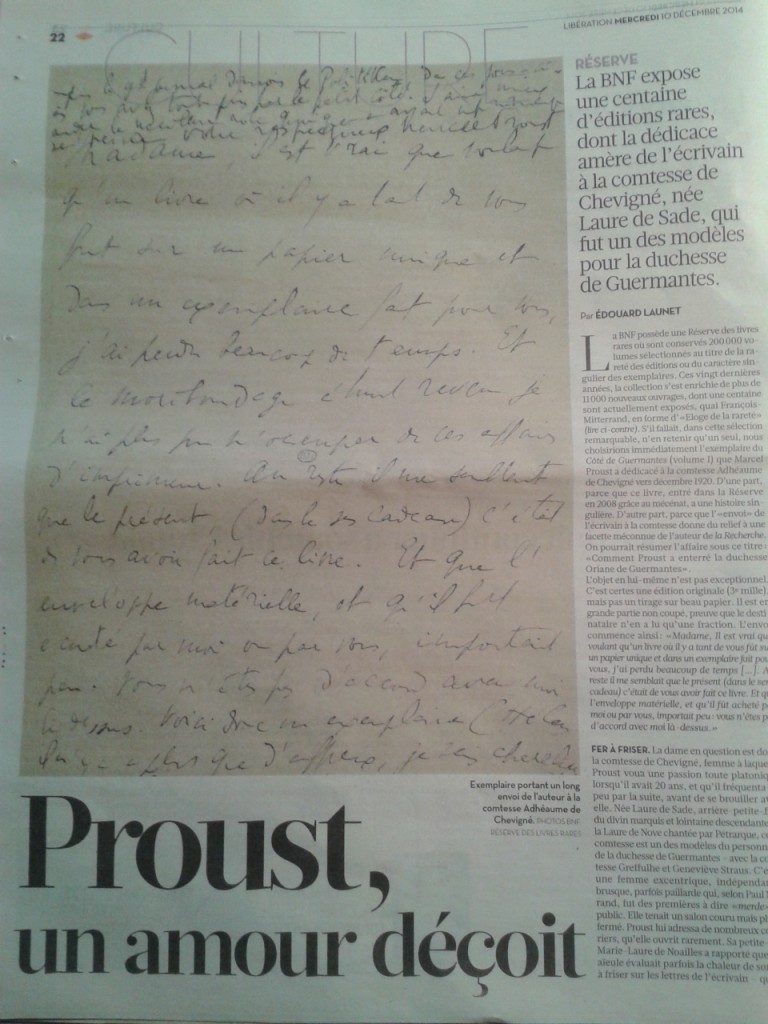 22
CULTURE
LIBÉRATION MERCREDI 10 DÉCEMBRE 2014
Madame, il est vrai que voulant
qu'un livre où il y a tant de vous
fut sur un papier unique et
dans un exemplaire fait pour vous,
j'ai perdu beaucoup de temps. Et
le moribondage étant revenu je
n'ai plus pu m'occuper de ces affaires
d'imprimeur. Au reste il me semblait
que le présent, (dans le sens cadeau) c'était
de vous avoir fait ce livre. Et que l'
enveloppe matérielle, et qu'il fut
acheté par moi ou par vous, importait
peu. Vous n'êtes pas d'accord avec moi
là-dessus. Voici donc un exemplaire
Exemplaire portant un long
envoi de l'auteur à la
comtesse Adhéaume de
Chevigné. PHOTOS BNF.
RÉSERVE DES LIVRES RARES
Proust,
un amour déçoit
RÉSERVE
La BNF expose
une centaine
d'éditions rares,
dont la dédicace
amère de l'écrivain
à la comtesse de
Chevigné, née
Laure de Sade, qui
fut un des modèles
pour la duchesse
de Guermantes.
Par ÉDOUARD LAUNET
La BNF possède une Réserve des livres
rares où sont conservés 200 000 vo-
lumes sélectionnés au titre de la ra-
reté des éditions ou du caractère sin-
gulier des exemplaires. Ces vingt dernières
années, la collection s'est enrichie de plus de
11 000 nouveaux ouvrages, dont une centaine
sont actuellement exposés, quai François-
Mitterrand, en forme d'«Eloge de la rareté»
(lire ci-contre). S'il fallait, dans cette sélection
remarquable, n'en retenir qu'un seul, nous
choisirions immédiatement l'exemplaire du
Côté de Guermantes (volume I) que Marcel
Proust a dédicacé à la comtesse Adhéaume
de Chevigné vers décembre 1920. D'une part,
parce que ce livre, entré dans la Réserve
en 2008 grâce au mécénat, a une histoire sin-
gulière. D'autre part, parce que l'«envoi» de
l'écrivain à la comtesse donne du relief à une
facette méconnue de l'auteur de la Recherche.
On pourrait résumer l'affaire sous ce titre:
«Comment Proust a enterré la duchesse
Oriane de Guermantes».
L'objet en lui-même n'est pas exceptionnel.
C'est certes une édition originale (3e mille),
mais pas un tirage sur beau papier. Il est en
grande partie non coupé, preuve que le desti
nataire n'en a lu qu'une fraction. L'envo
commence ainsi: «Madame, Il est vrai qu
voulant qu'un livre où il y a tant de vous fût su
un papier unique et dans un exemplaire fait pou
vous, j'ai perdu beaucoup de temps [...]. A
reste il me semblait que le présent (dans le se
cadeau) c'était de vous avoir fait ce livre. Et q
l'enveloppe matérielle, et qu'il fût acheté p
moi ou par vous, importait peu: vous n'êtes p
d'accord avec moi là-dessus.»
FER À FRISER. La dame en question est do
la comtesse de Chevigné, femme à laque
Proust voua une passion toute platoniq
lorsqu'il avait 20 ans, et qu'il fréquenta
peu par la suite, avant de se brouiller a
elle. Née Laure de Sade, arrière-petite-f
du divin marquis et lointaine descendante
la Laure de Nove chantée par Pétrarque, c
comtesse est un des modèles du personn
de la duchesse de Guermantes – avec la co
tesse Greffulhe et Geneviève Straus. C'é
une femme excentrique, indépendan
brusque, parfois paillarde qui, selon Paul M
rand, fut des premières à dire «merde»
public. Elle tenait un salon couru mais pl
fermé. Proust lui adressa de nombreux co
riers, qu'elle ouvrit rarement. Sa petite-
Marie-Laure de Noailles a rapporté que
aïeule évaluait parfois la chaleur de so
à friser sur les lettres de l'écrivain – q